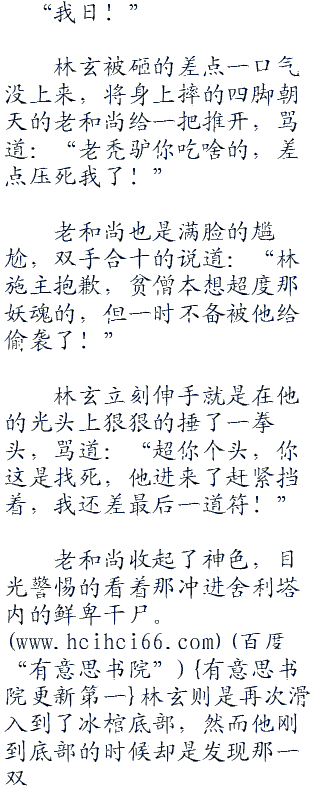 “我日！”
林玄被砸的差点一口气
没上来，将身上摔的四脚朝
天的老和尚给一把推开，骂
道：“老秃驴你吃啥的，差
点压死我了！”
老和尚也是满脸的尴
尬，双手合十的说道：“林
施主抱歉，贫僧本想超度那
妖魂的，但一时不备被他给
偷袭了！”
林玄立刻伸手就是在他
的光头上狠狠的捶了一拳
头，骂道：“超你个头，你
这是找死，他进来了赶紧挡
着，我还差最后一道符！”
老和尚收起了神色，目
光警惕的看着那冲进舍利塔
内的鲜卑干尸。
(www.hcihci66.com)(百度
“有意思书院”){有意思书
院更新第一}林玄则是再次滑
入到了冰棺底部，然而他刚
到底部的时候却是发现那一
双